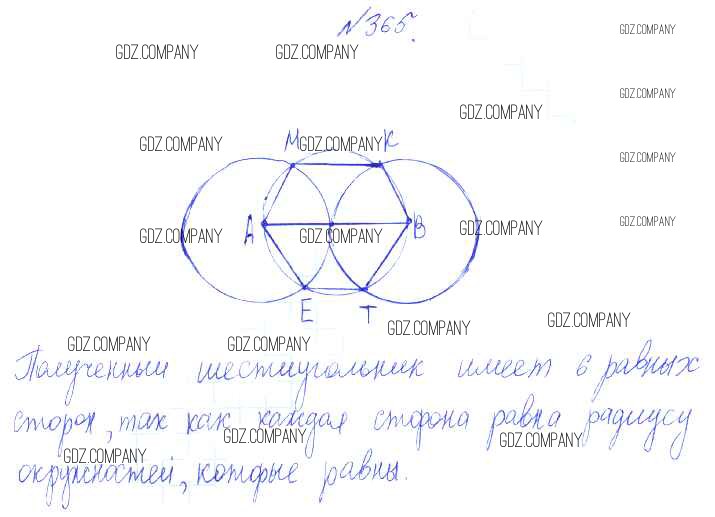 №365.
GDZ.COMPANY GDZ.COMPANY GDZ.COMPANY
GDZ.COMPANY
GDZ.COMPANY
M K
GDZ.COMPANY GDZ.COMPANY
GDZ.COMPANY
A B
GDZ.COMPANY GDZ.COMPANY GDZ.COMPANY GDZ.COMPANY
E T
GDZ.COMPANY GDZ.COMPANY
GDZ.COMPANY GDZ.COMPANY
Полученный шестиугольник имеет 6 равных
сторон, так как каждая сторона равна радиусу
GDZ.COMPANY GDZ.COMPANY
GDZ.COMPANY
окружностей, которые равны.